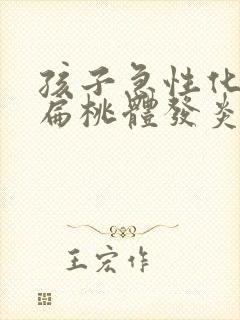 孩子急性化
扁桃體發炎
王宏作